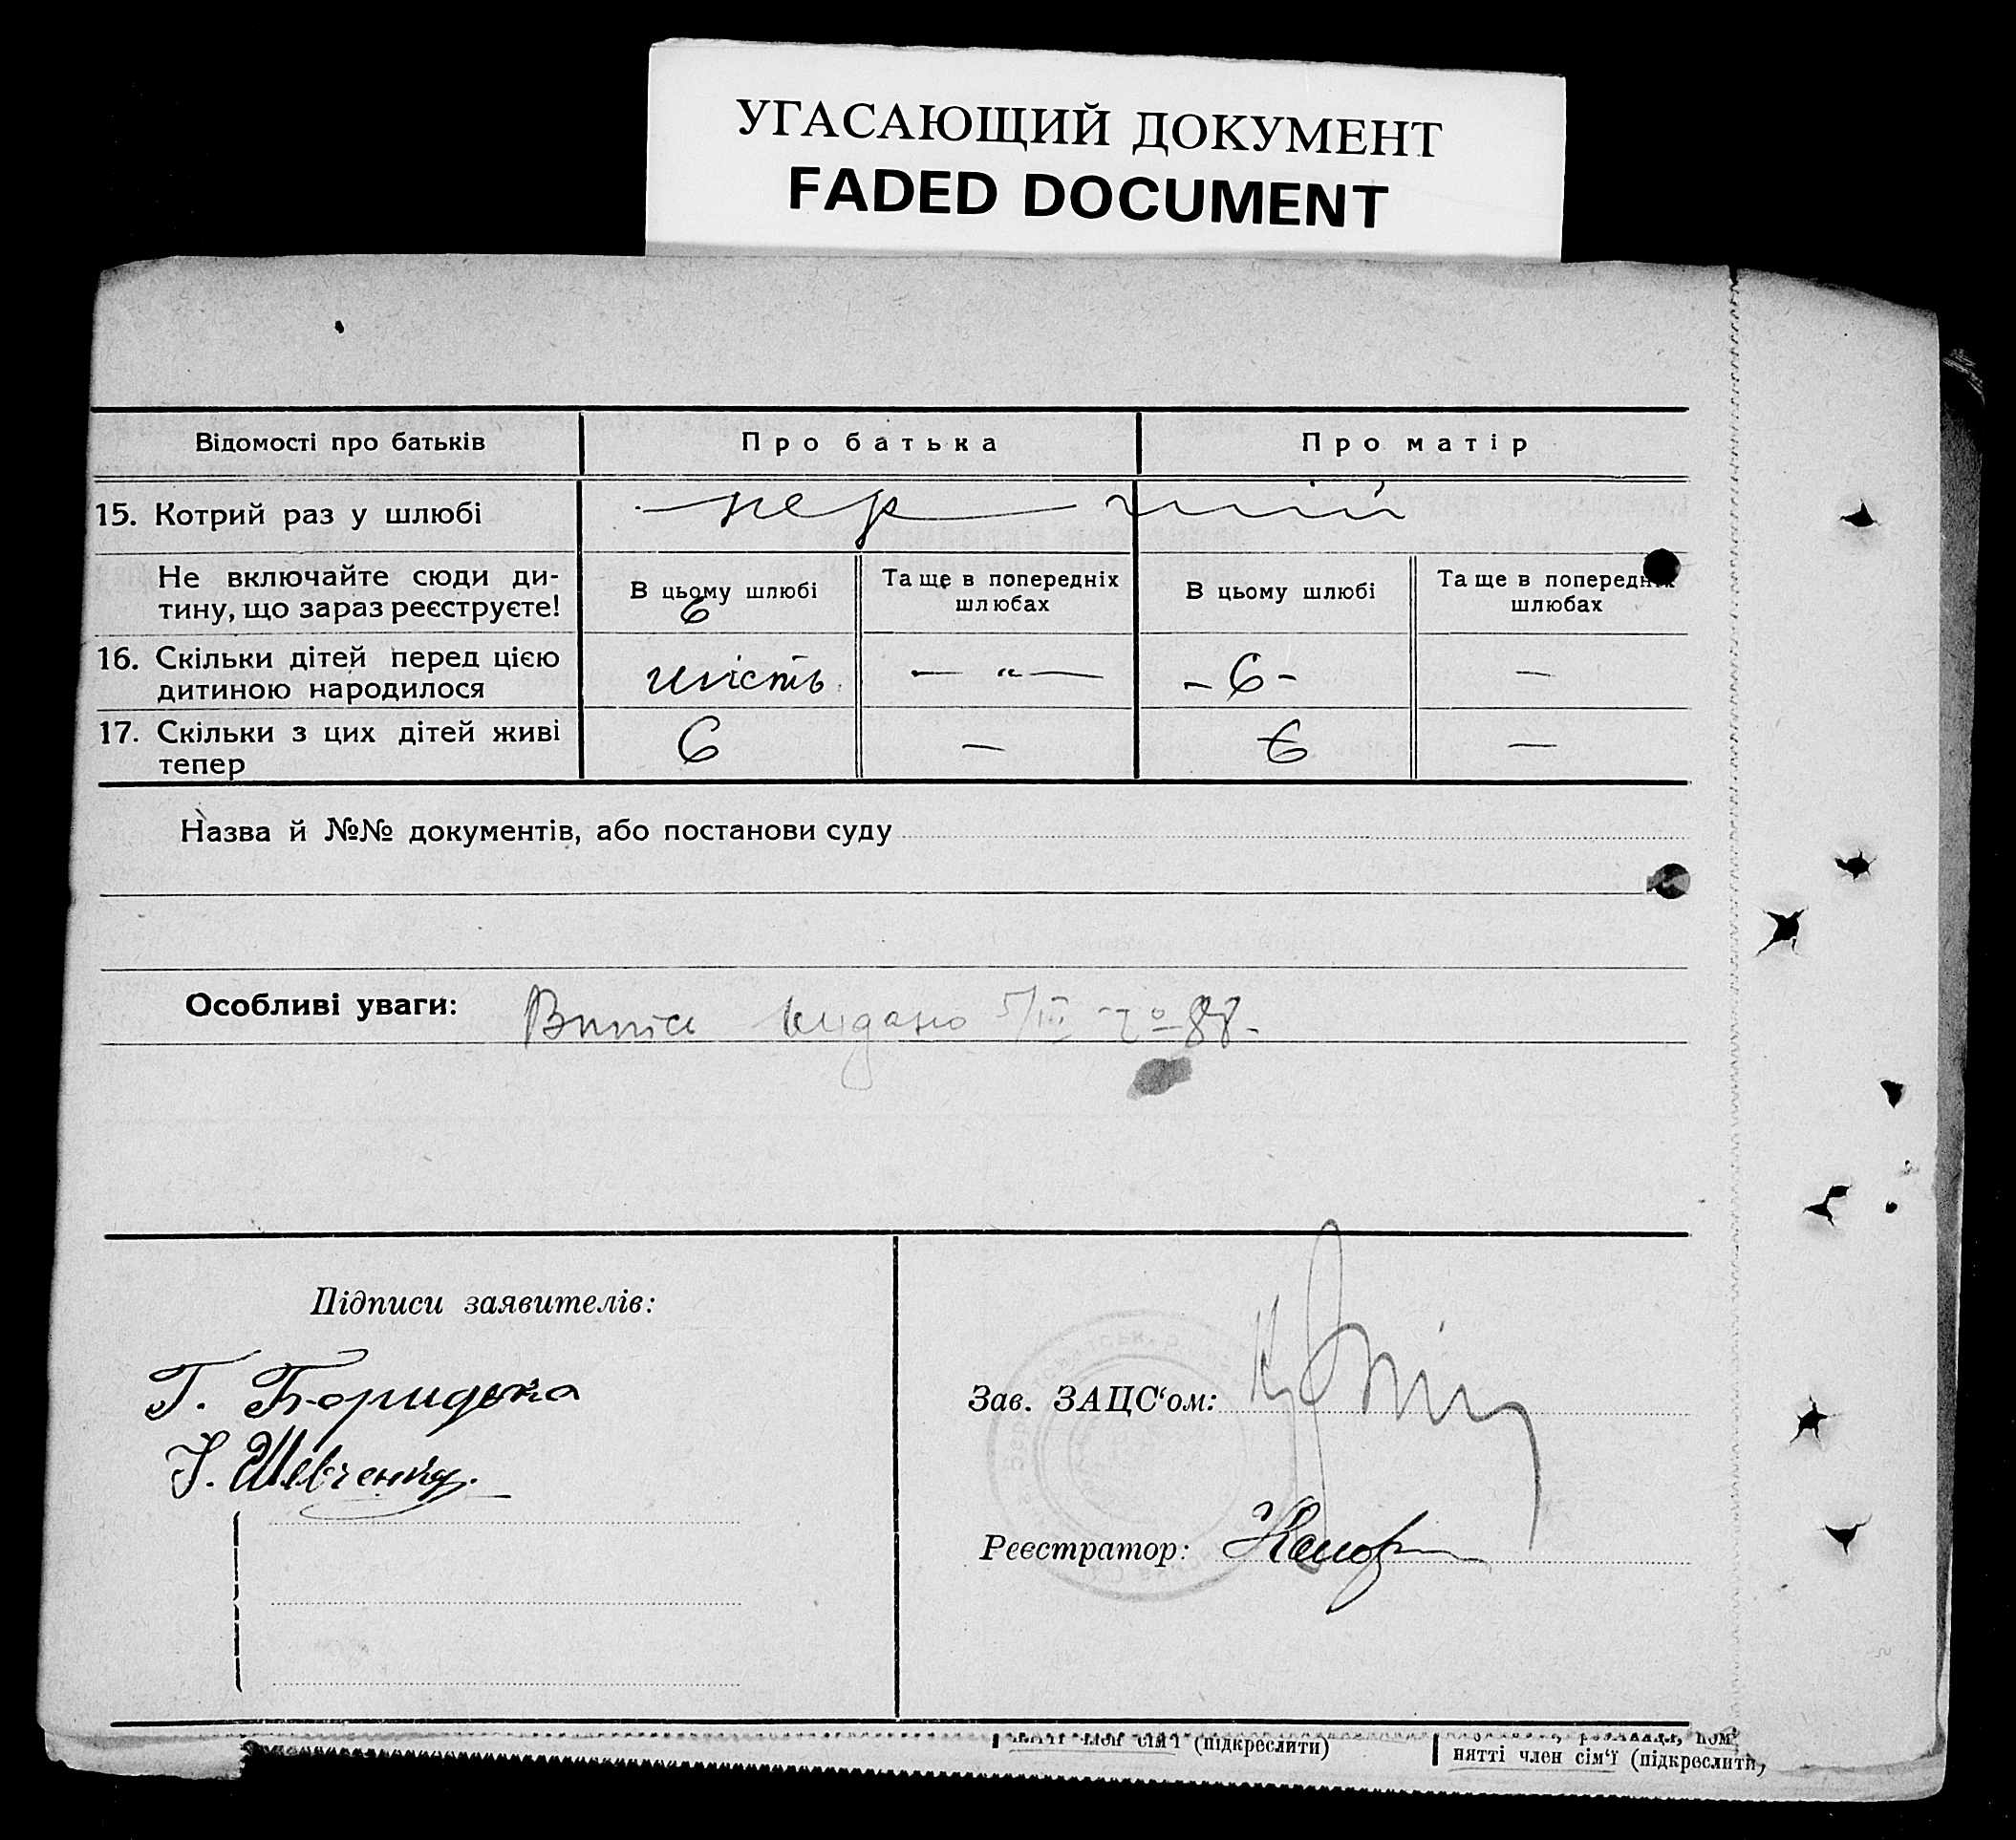 УГАСАЮЩИЙ ДОКУМЕНТ
FADED DOCUMENT
Відомості про батьків
Про батька
Про матір
15. Котрий раз у шлюбі
перший
Не включайте сюди ди-
тину, що зараз реєструєте!
В цьому шлюбі
6
Та ще в попередніх
шлюбах
В цьому шлюбі
Та ще в попередніх
шлюбах
16. Скільки дітей перед цією
дитиною народилося
шість
— " —
- 6 -
—
17. Скільки з цих дітей живі
тепер
6
—
6
—
Назва й №№ документів, або постанови суду
Особливі уваги: Випис видано 5/III
Підписи заявителів:
Г.
Шевченко.
Зав. ЗАЦС‘ом:
Реєстратор:
член сім‘ї (підкреслити)
нятті член сім‘ї (підкреслити)